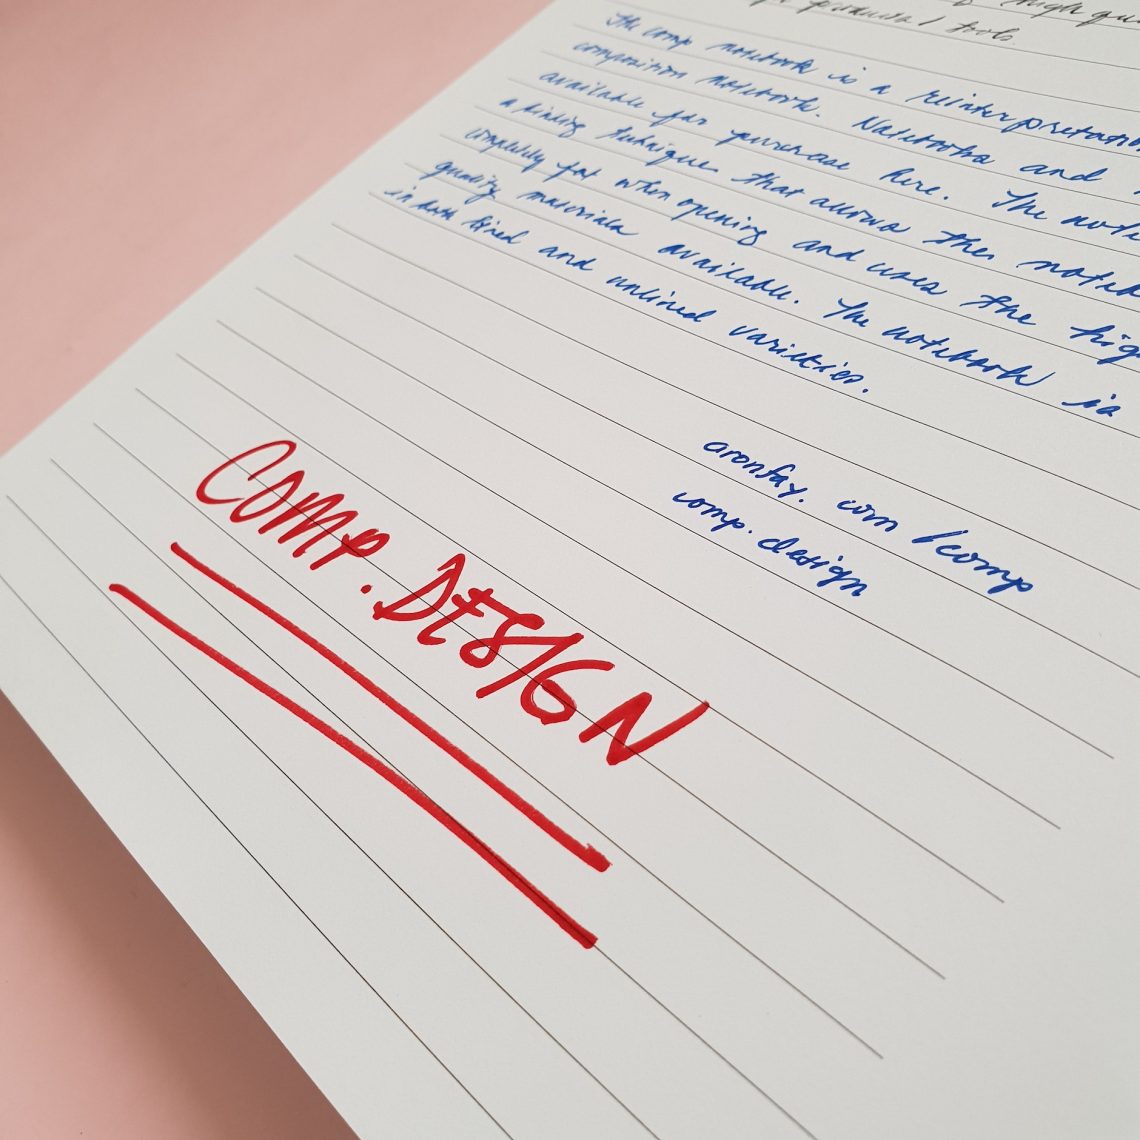 of high qu
products / tools.
The comp notebook is a reinterpretation
composition notebook. Notebooks and
available for purchase here. The note
a binding technique that allows the noteb
completely flat when opening and uses the hig
quality materials available. The notebook is
in both lined and unlined varieties.
aronfay.com/comp
comp.design
COMP.DESIGN